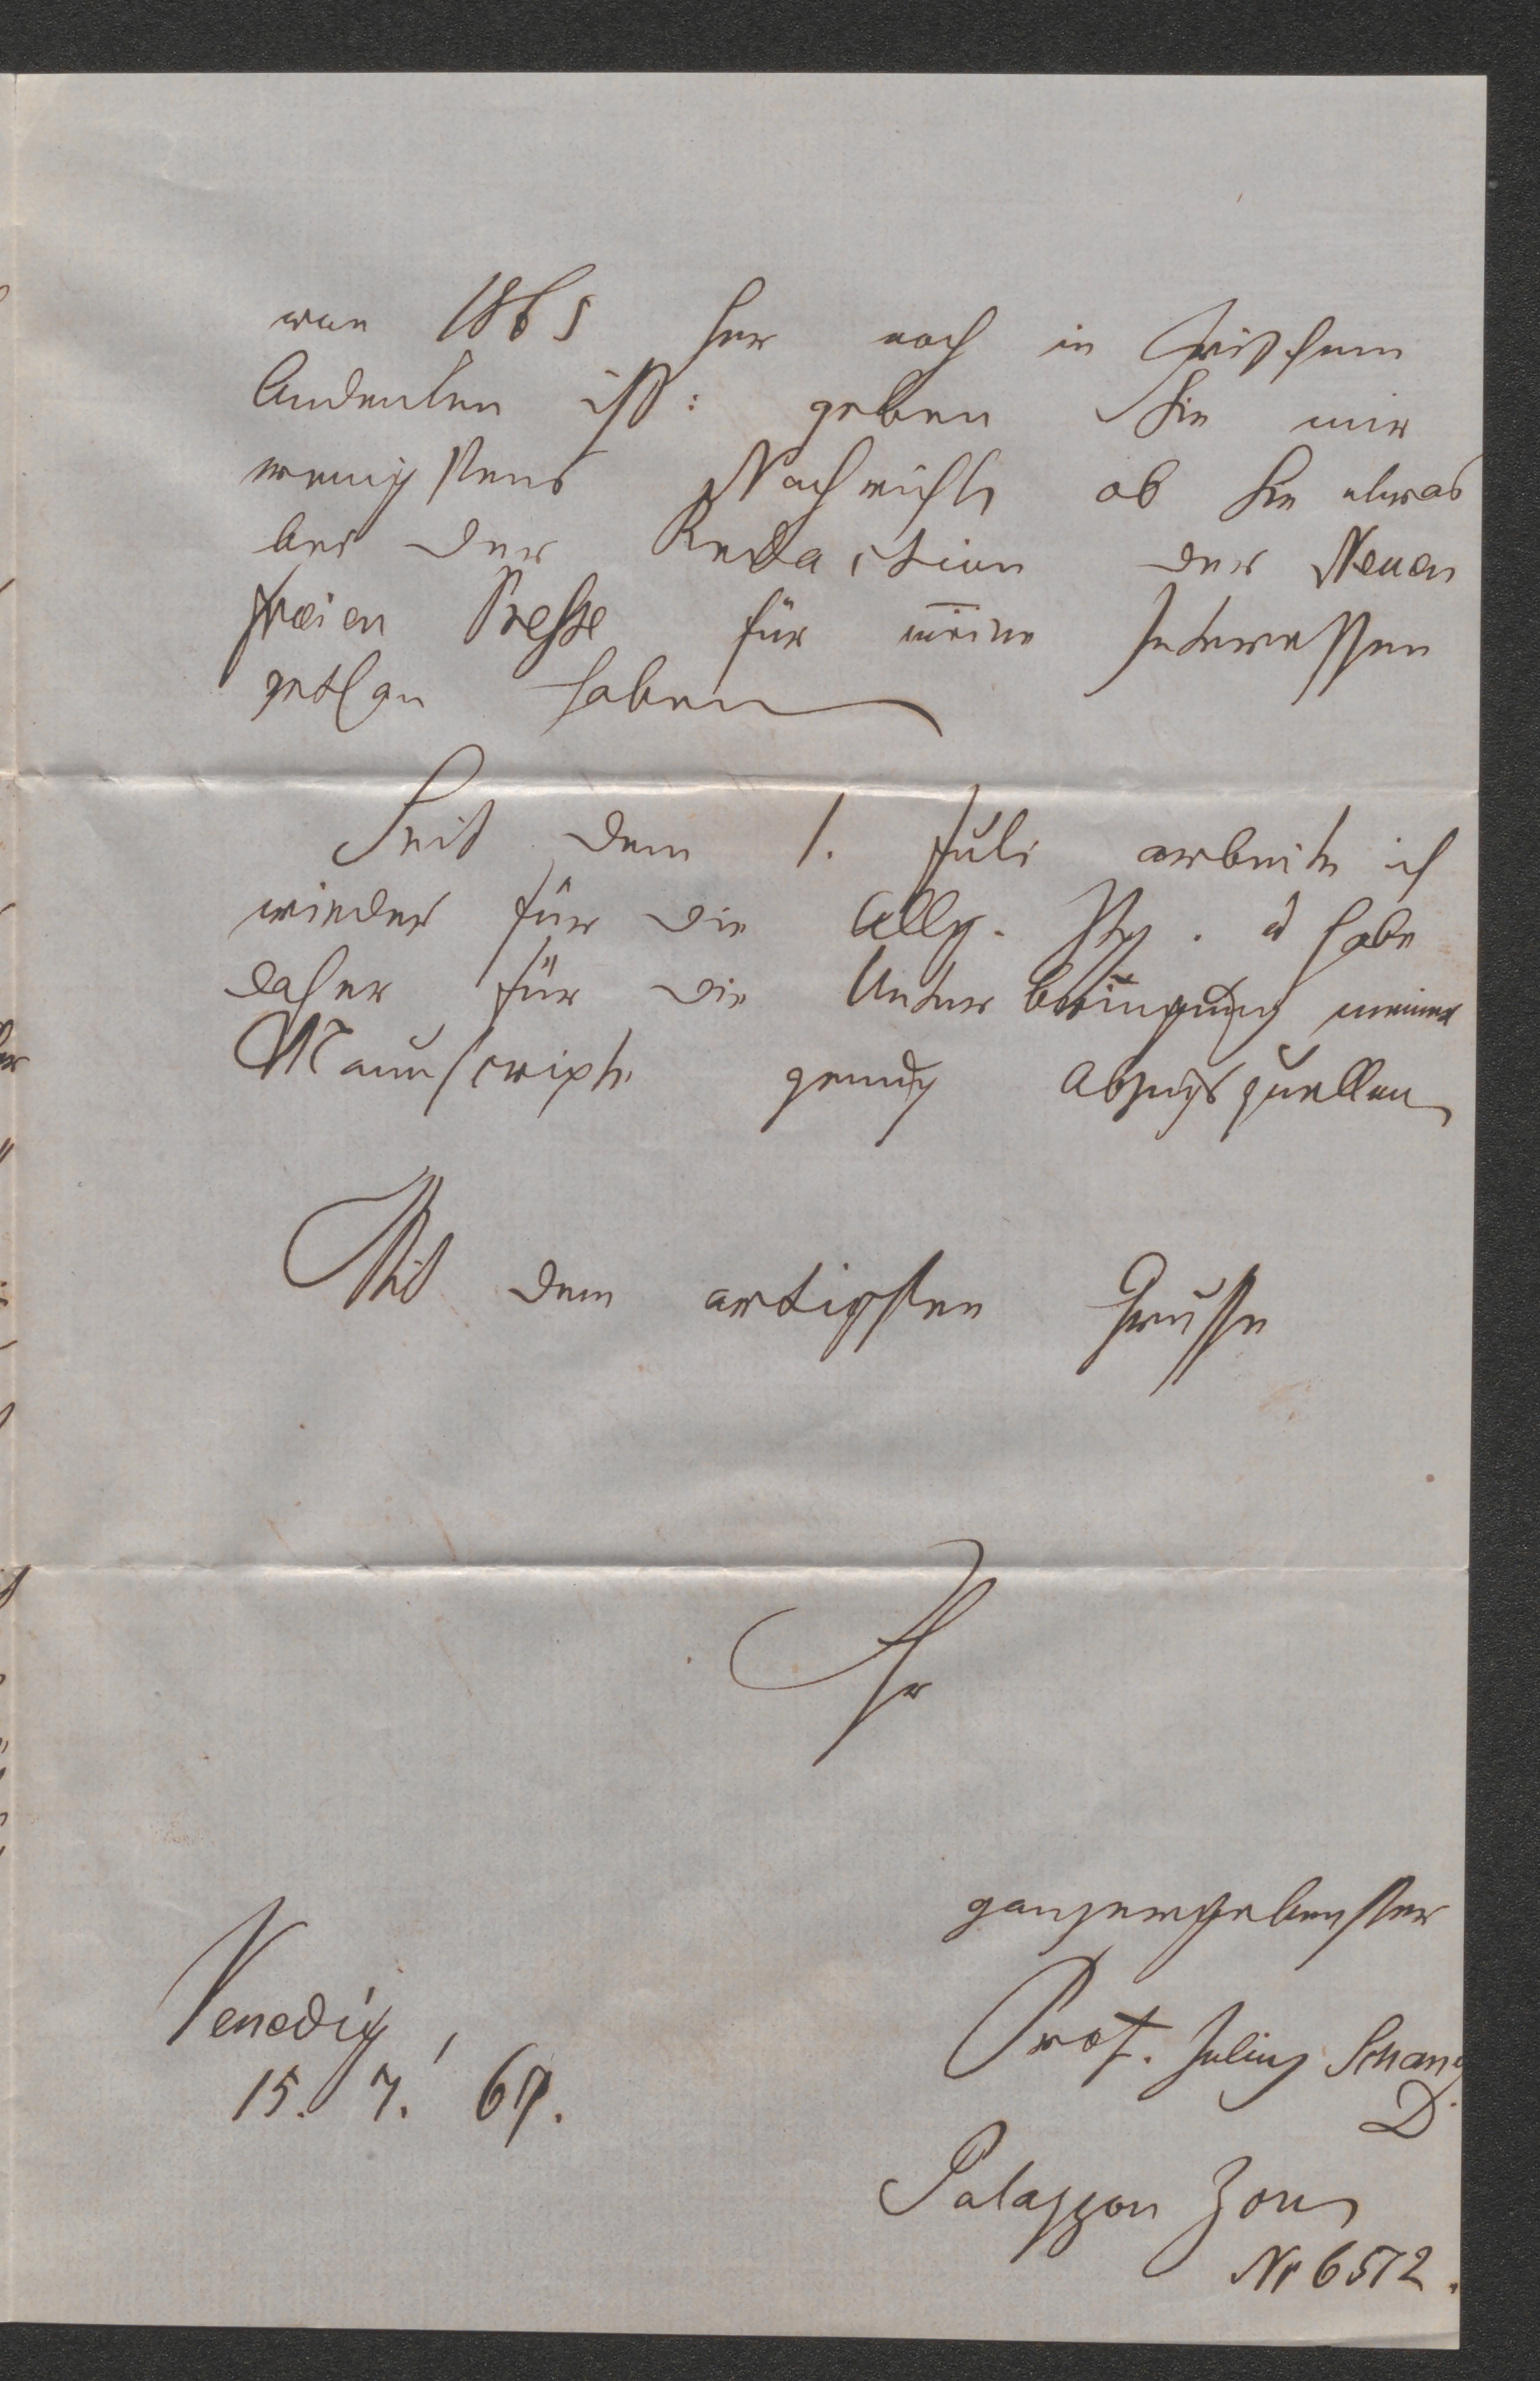 von 1865 her noch in frischem
Andenken ist: geben Sie mir
wenigstens Nachricht, ob Sie etwas
bei der Redaction der Neuen
freien Presse für meine Interessen
gethan haben
Seit dem 1. Juli arbeite ich
wieder für die Allg. Ztg. u habe
daher für die Unterbringung meiner
Manuscripte genug Abzugsquellen
Mit dem artigsten Grusse
Ihr
ganzergebenster
Venedig,
Prof. Julius Schanz
15. 7. 67.
D.
Palazzon Zon
Nr 6572.